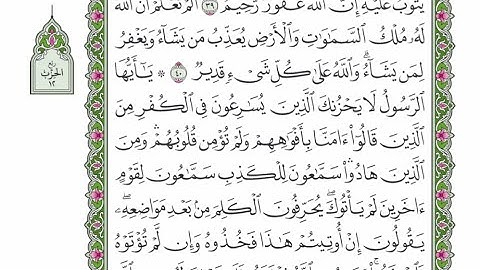 يَتُوبُ عَلَيْهِ إِنَّ ٱللَّهَ غَفُورٌ رَّحِيمٌ ٣٩ أَلَمْ تَعْلَمْ أَنَّ ٱللَّهَ
لَهُۥ مُلْكُ ٱلسَّمَٰوَٰتِ وَٱلْأَرْضِ يُعَذِّبُ مَن يَشَآءُ وَيَغْفِرُ
لِمَن يَشَآءُ ۗ وَٱللَّهُ عَلَىٰ كُلِّ شَىْءٍ قَدِيرٌ ٤٠ ۞ يَٰٓأَيُّهَا
ٱلرَّسُولُ لَا يَحْزُنكَ ٱلَّذِينَ يُسَٰرِعُونَ فِى ٱلْكُفْرِ مِنَ
ٱلَّذِينَ قَالُوٓا۟ ءَامَنَّا بِأَفْوَٰهِهِمْ وَلَمْ تُؤْمِن قُلُوبُهُمْ ۛ وَمِنَ
ٱلَّذِينَ هَادُوا۟ ۛ سَمَّٰعُونَ لِلْكَذِبِ سَمَّٰعُونَ لِقَوْمٍ
ءَاخَرِينَ لَمْ يَأْتُوكَ ۖ يُحَرِّفُونَ ٱلْكَلِمَ مِنۢ بَعْدِ مَوَاضِعِهِۦ ۖ
يَقُولُونَ إِنْ أُوتِيتُمْ هَٰذَا فَخُذُوهُ وَإِن لَّمْ تُؤْتَوْهُ
ربع
الحزب
١٢